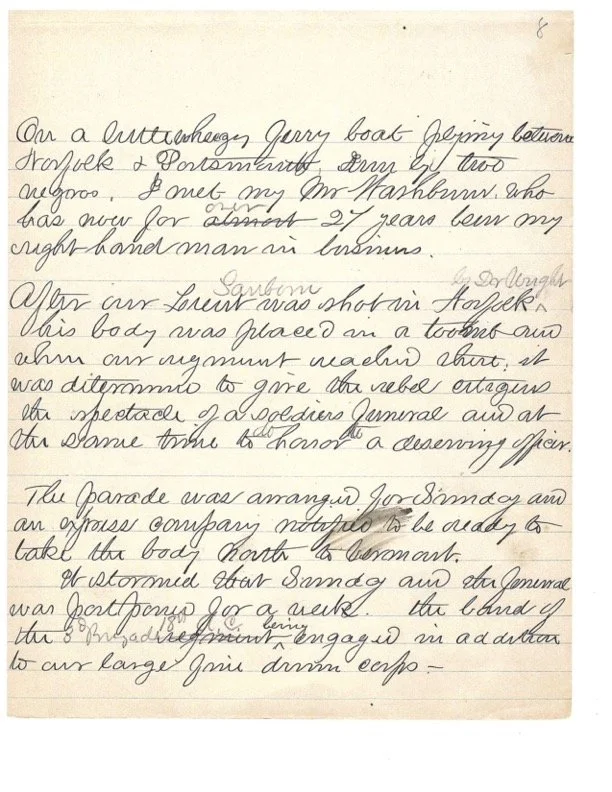 8
On a little wheezy ferry boat plying between
Norfolk & Portsmouth, run by two
negros. I met my Mr Washburn, who
has now for almost over 27 years been my
right hand man in business.
After our Lieut Sanborn was shot in Norfolk by Dr Wright
his body was placed in a toomb and
when our regiment reached there, it
was determine to give the rebel citizens
the spectacle of a soldiers funeral and at
the same time to do honor to a deserving officer.
The parade was arranged for Sunday and
an express company notified to be ready to
take the body North to Vermont.
It stormed that Sunday and the funeral
was postponed for a week. the band of
the 3d Brigade 18th A.C. regiment being engaged in addition
to our large fine drum corps —